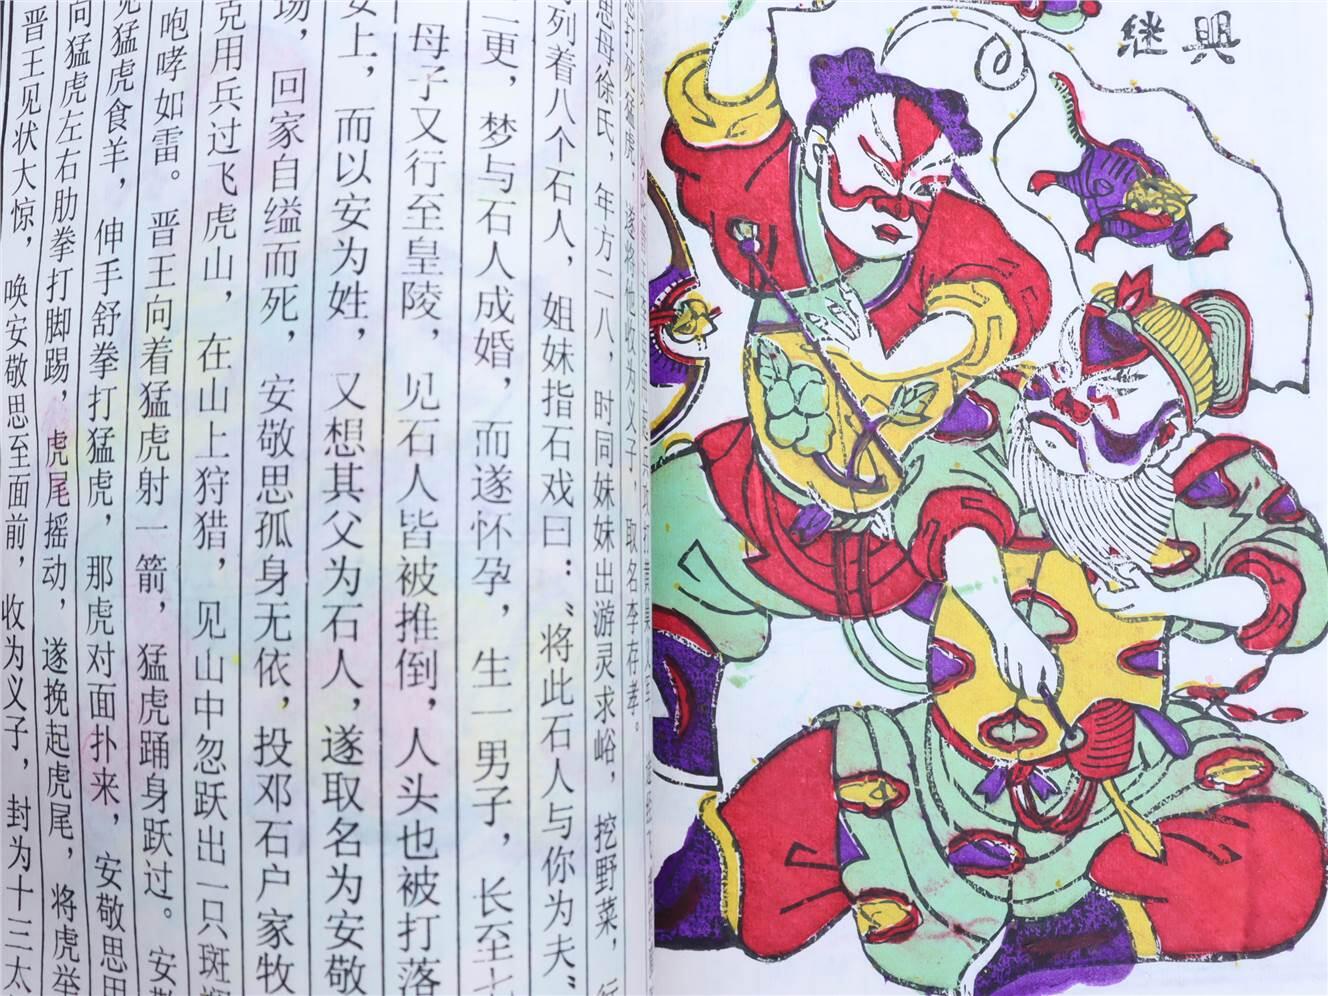 继興
打死猛虎，遂将他收为义子，取名李存孝。
思母徐氏，年方二八，时同妹妹出游灵求峪，挖野菜，行
列着八个石人，姐妹指石戏曰：“将此石人与你为夫”
二更，梦与石人成婚，而遂怀孕，生一男子，长至七
母子又行至皇陵，见石人皆被推倒，人头也被打落
安上，而以安为姓，又想其父为石人，遂取名为安敬
场，回家自缢而死，安敬思孤身无依，投邓石户家牧
克用兵过飞虎山，在山上狩猎，见山中忽跃出一只斑
咆哮如雷。晋王向着猛虎射一箭，猛虎踊身跃过。安
见猛虎食羊，伸手舒拳打猛虎，那虎对面扑来，安敬思
向猛虎左右肋拳打脚踢，虎尾摇动，遂挽起虎尾，将虎举
晋王见状大惊，唤安敬思至面前，收为义子，封为十三太